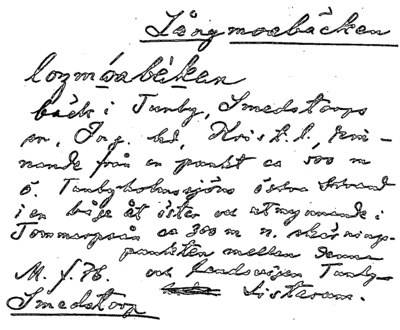 Långmosebäcken
lozmósabèken
bäck i Tunby, Smedstorps
sn, Ing. hd, Krist. l., rin-
nande från en punkt ca 500 m
ö. Tunbyholmssjöns östra strand
i en båge åt öster och utmynnande i
Tommarpsån ca 300 m n. skärnings-
punkten mellan denna
M. f. 76. och landsvägen Tunby-
Listarum.
Smedstorp